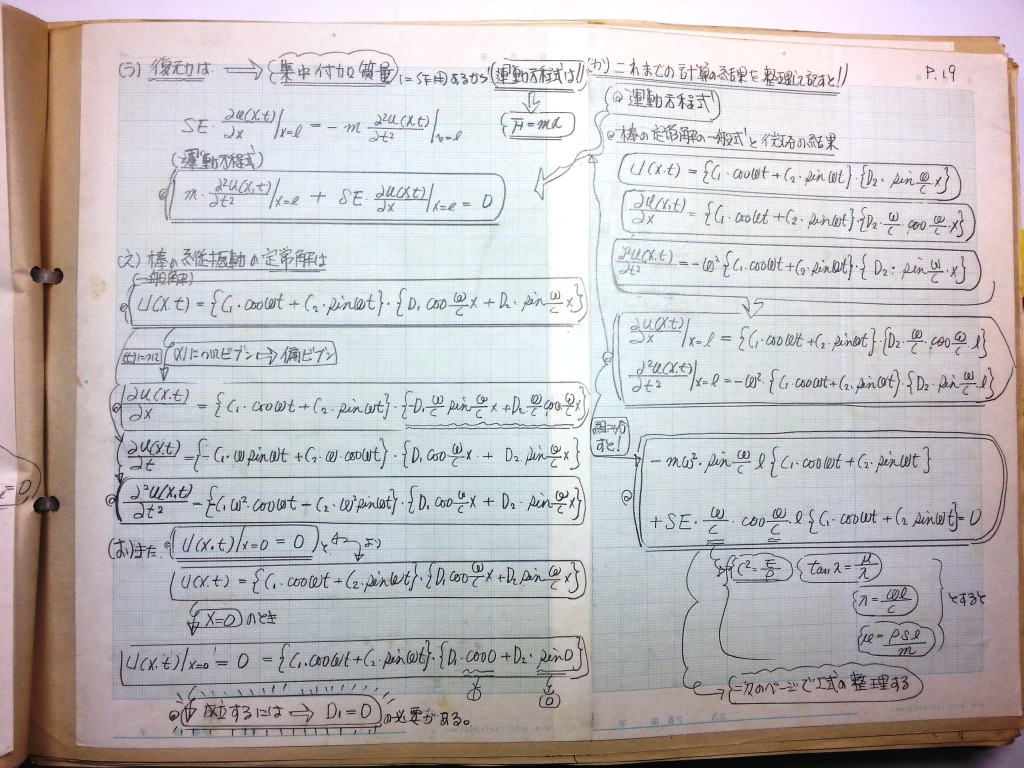 (う) 復元力は → {集中付加質量}に作用するから{運動方程式は!!
SE・∂U(x,t)/∂x|x=l = -m ∂²U(x,t)/∂t²|x=l
F=ma
(運動方程式)
m・∂²U(x,t)/∂t²|x=l + SE・∂U(x,t)/∂x|x=l = 0
(え) 棒の縦振動の定常解は
(一般解)
U(x,t) = {C₁・cosωt + C₂・sinωt}・{D₁ cos ω/c x + D₂・sin ω/c x}
(x)についてビブン ⇒ 偏ビブン
∂U(x,t)/∂x = {C₁・cosωt + C₂・sinωt}・{-D₁ ω/c sin ω/c x + D₂・ω/c cos ω/c x}
∂U(x,t)/∂t = {-C₁・ω sinωt + C₂・ω・cosωt}・{D₁ cos ω/c x + D₂ sin ω/c x}
∂²U(x,t)/∂t² = {-C₁ω²・cosωt - C₂・ω² sinωt}・{D₁ cos ω/c x + D₂・sin ω/c x}
(お) また U(x,t)|x=0 = 0 より
U(x,t) = {C₁・cosωt + C₂・sinωt}・{D₁ cos ω/c x + D₂ sin ω/c x}
x=0 のとき
U(x,t)|x=0 = 0 = {C₁・cosωt + C₂・sinωt}・{D₁・cos0 + D₂・sin0}
0
成立するには ⇒ D₁=0 の必要がある。
(か) これまでの計算の結果を整理して記すと!!
P.19
◎運動方程式
◎棒の定常解の一般式と微分の結果
U(x,t) = {C₁・cosωt + C₂・sinωt}・{D₂・sin ω/c x}
∂U(x,t)/∂x = {C₁・cosωt + C₂・sinωt}・{D₂・ω/c cos ω/c x}
∂²U(x,t)/∂t² = -ω²{C₁・cosωt + C₂・sinωt}・{D₂・sin ω/c x}
∂U(x,t)/∂x|x=l = {C₁・cosωt + C₂・sinωt}・{D₂・ω/c・cos ω/c l}
∂²U(x,t)/∂t²|x=l = -ω²・{C₁・cosωt + C₂・sinωt}・{D₂・sin ω/c l}
すと!
-mω²・sin ω/c l {C₁・cosωt + C₂・sinωt}
+SE・ω/c・cos ω/c・l {C₁・cosωt + C₂ sinωt} = 0
C² = E/ρ {tanλ = μ/λ
λ = ωl/c とすると
μ = ρSl/m
次のページで上式の整理する